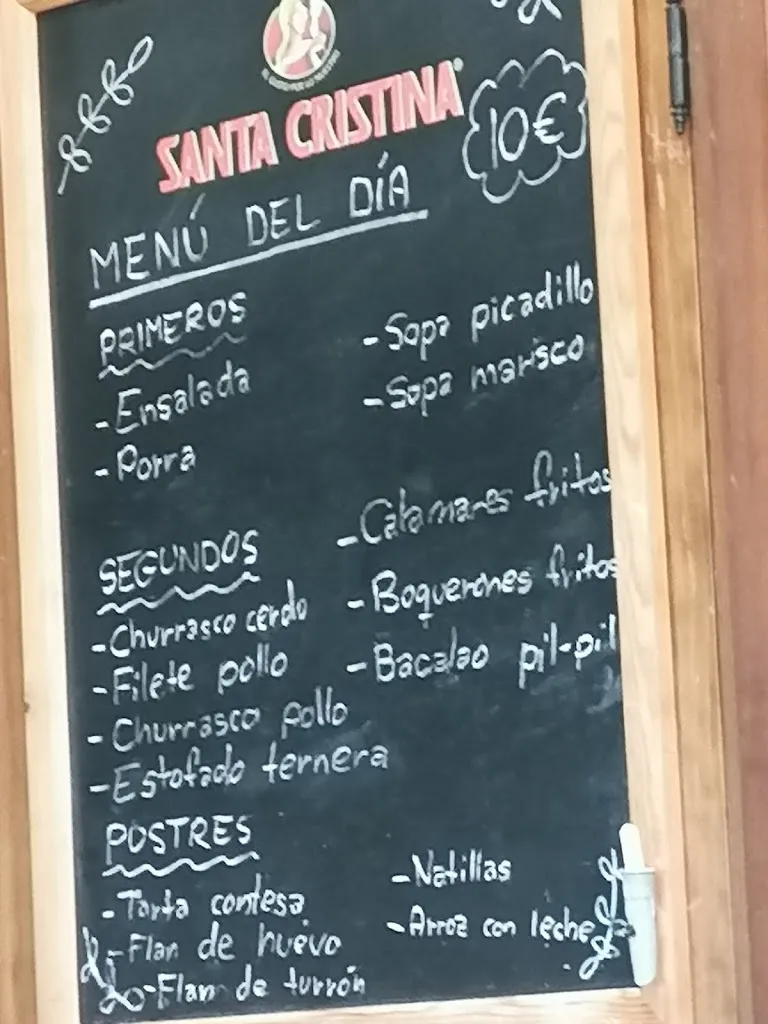 SANTA CRISTINA
10€
MENÚ DEL DÍA
PRIMEROS
-Ensalada
-Porra
-Sopa picadillo
-Sopa marisco
SEGUNDOS
-Churrasco cerdo
-Filete pollo
-Churrasco pollo
-Estofado ternera
-Calamares fritos
-Boquerones fritos
-Bacalao pil-pil
POSTRES
-Tarta contesa
-Flan de huevo
-Flan de turrón
-Natillas
-Arroz con leche